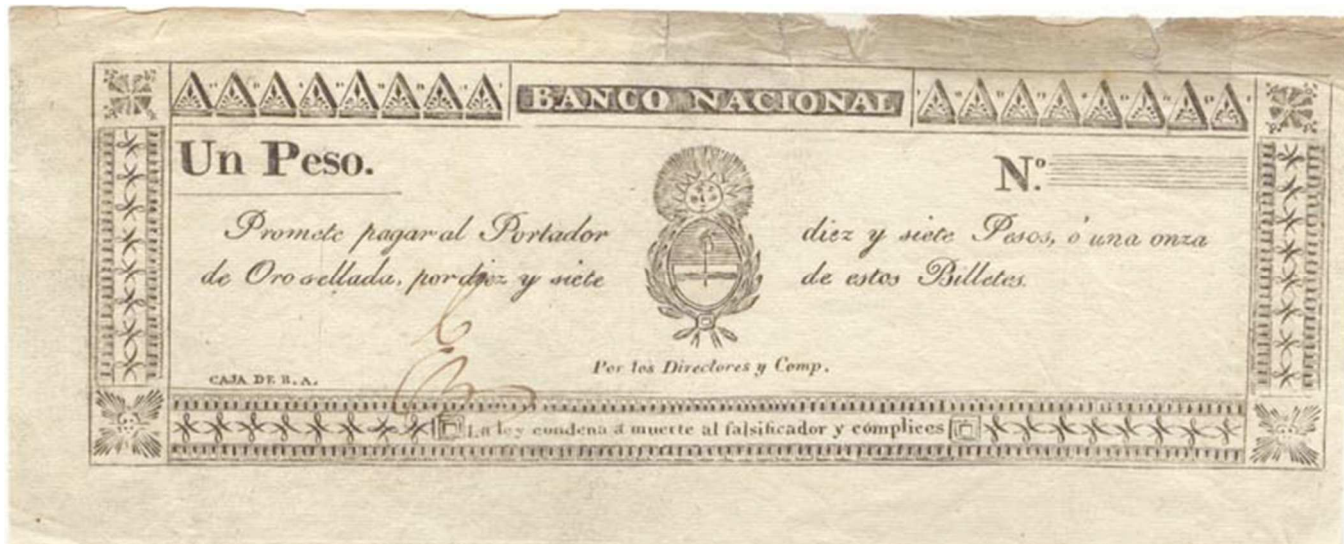 BANCO NACIONAL
Un Peso.
N.º
Promete pagar al Portador diez y siete Pesos, ó una onza
de Oro sellada, por diez y siete de estos Billetes.
Por los Directores y Comp.
CAJA DE B. A.
La ley condena á muerte al falsificador y cómplices